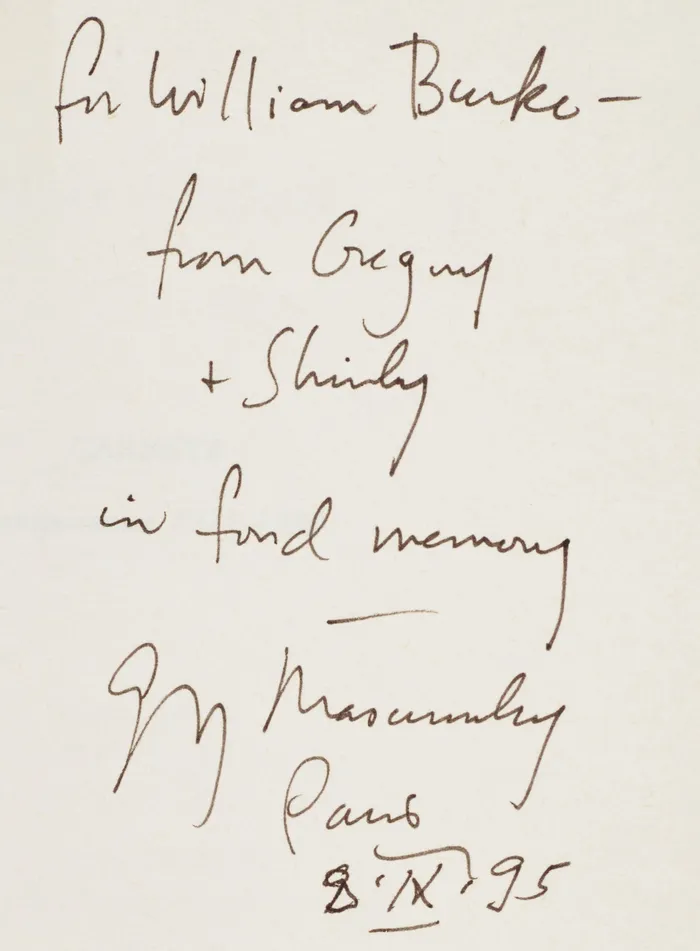 for William Burke -
from Gregory
+ Shirley
in fond memory
—
Gregory Masurovsky
Paris
8·IX·95